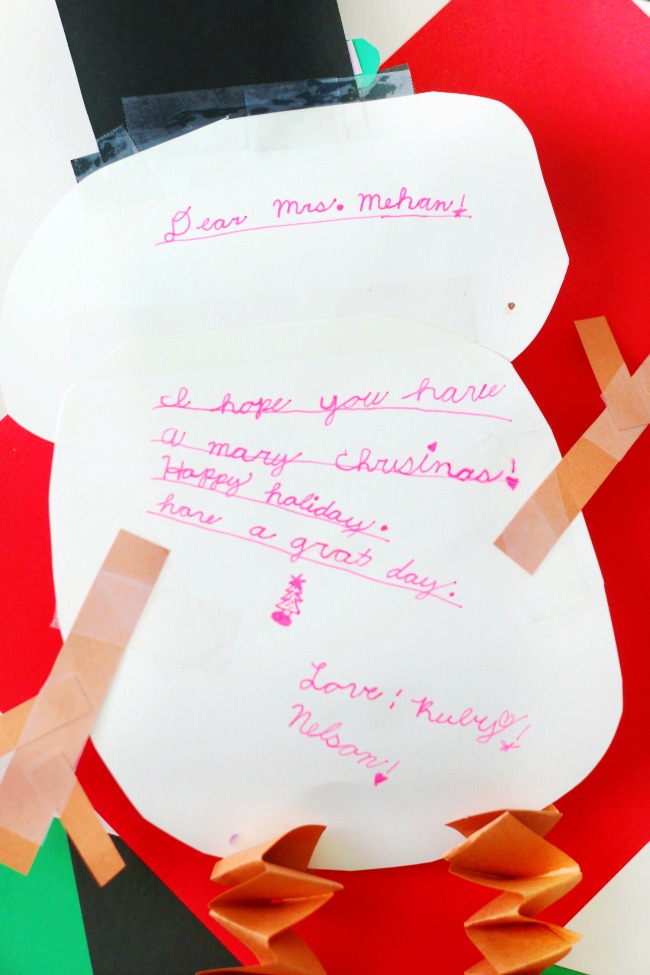 Dear Mrs. Mehan!
I hope you have
a mary Chrusinas!
Happy holiday.
have a grat day.
Love! Ruby!
Nelson!